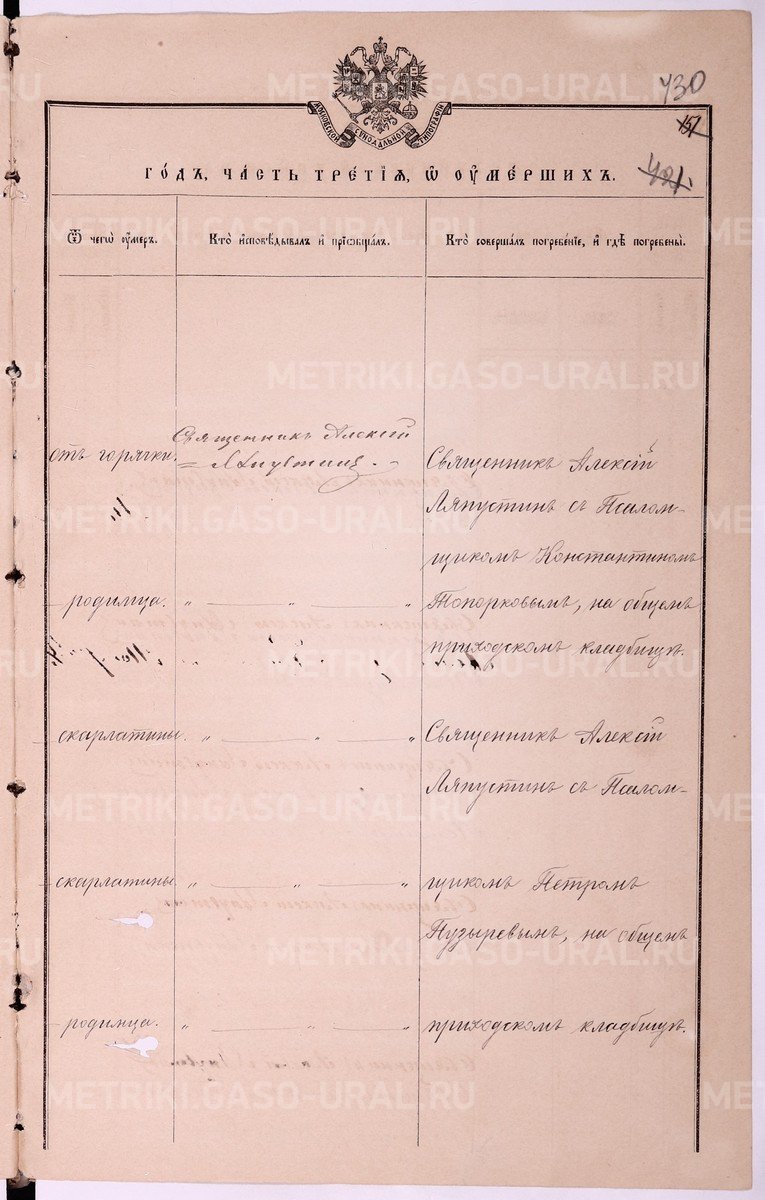 730
МОСКОВСКОЙ СѴНОДАЛЬНОЙ ТИПОГРАФІИ
151
421.
ГОДЪ, ЧАСТЬ ТРЕТІЯ, Ѡ ОУМЕРШИХЪ.
Ѿ чегѡ оумеръ.
Кто исповѣдывалъ и пріѡбщалъ.
Кто совершалъ погребеніе, и гдѣ погребены.
отъ горячки.
Священникъ Алексій
Ляпустинъ.
Священникъ Алексій
Ляпустинъ съ Псалом-
щикомъ Константиномъ
родимца. " — " — "
Топорковымъ, на общемъ
приходскомъ кладбищѣ.
скарлатины. " — " — "
Священникъ Алексій
Ляпустинъ съ Псалом-
скарлатины. " — " — "
щикомъ Петромъ
Пузыревымъ, на общемъ
родимца. " — " — "
приходскомъ кладбищѣ.
METRIKI.GASO-URAL.RU